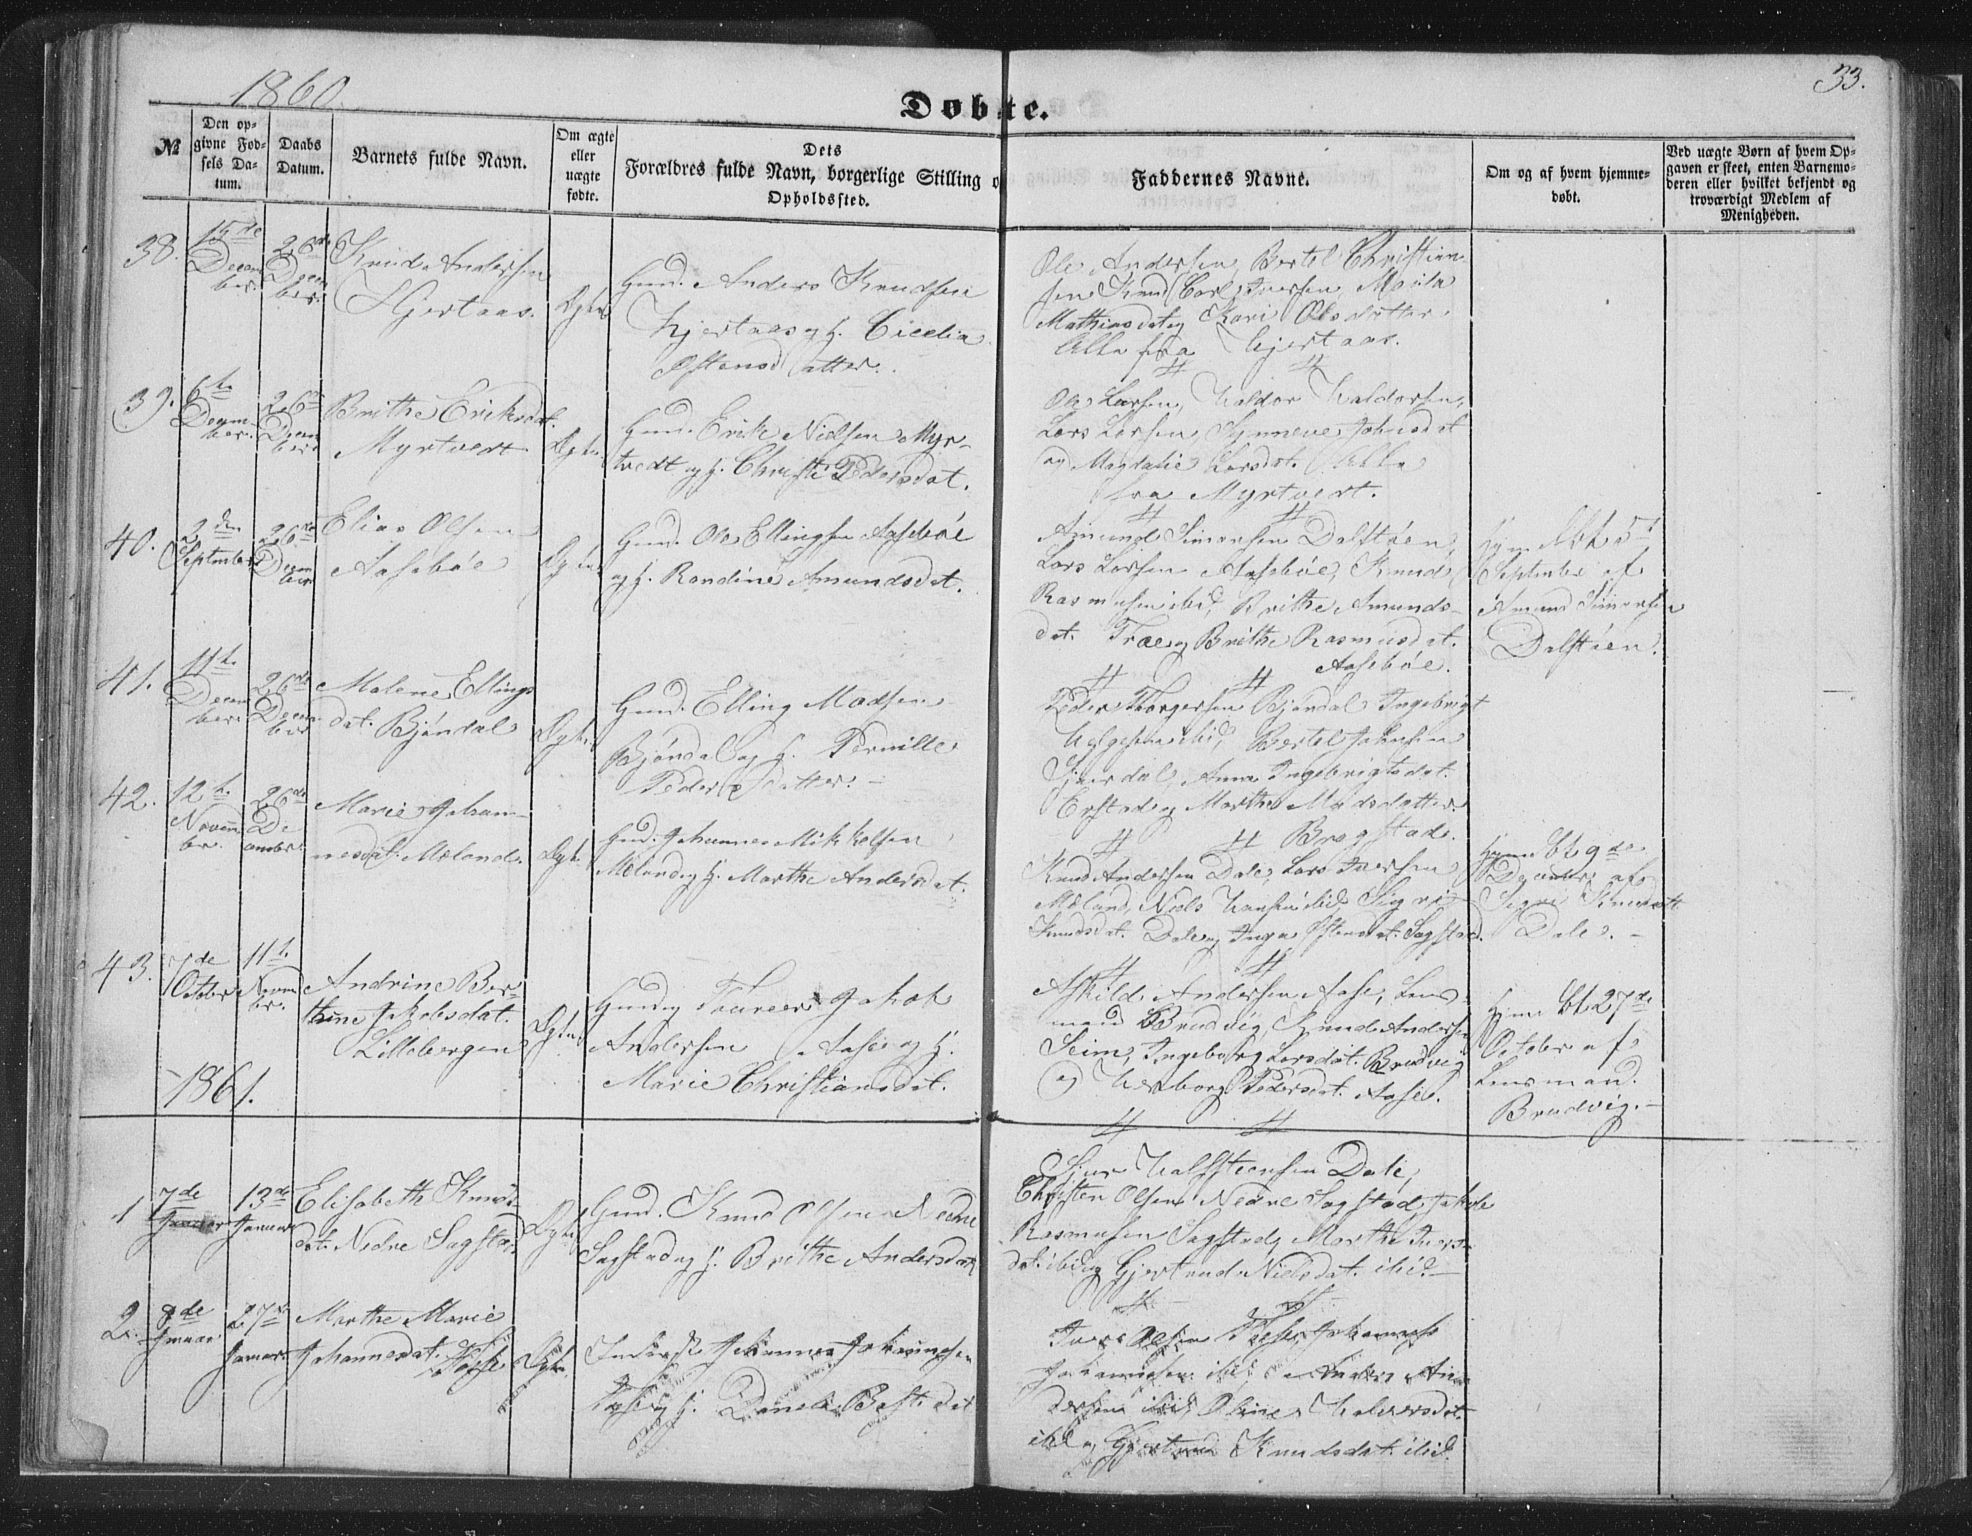 1860.
33.
Døbte.
№
Den op-
givne Fød-
sels Da-
tum.
Daabs
Datum.
Barnets fulde Navn.
Om ægte
eller
uægte
fødte.
Dets
Forældres fulde Navn, borgerlige Stilling o
Opholdssted.
Faddernes Navne.
Om og af hvem hjemme-
døbt.
Ved uægte Børn af hvem Op-
gaven er skeet, enten Barnemo-
deren eller hvilket bekjendt og
troværdigt Medlem af
Menigheden.
38.
15de
Decem
ber.
26de
Decem
ber.
Knud Andersen
Hjertaas.
Ægte
Gmd. Anders Knudsen
Hjertaas og H. Cicelia
Ostensdatter.
Ole Andersen, Bertel Christian-
sen Knud Carl Iversen
Mathiasdat og Kari Olsdatter.
Alle fra Hjertaas.
39.
6te
Decem
ber.
26de
Decem
ber
Brithe Eriksdat.
Myrtvedt
Ægte
Gmd. Erik Nielsen Myr-
tvedt og H. Christi Pedersdat.
Ole Larsen, Haldor Haldorsen,
Lars Larsen, Synneve Johnsdat
og Magdalie Larsdat. Alle
fra Myrtvert.
40.
2den
September
26de
Decem
ber
Elias Olsen
Aasebøe
Ægte
Gmd. Ole Ellingsen Aasebøe
og H. Randine Amundsdat.
Amund Simonsen Dalstøen,
Lars Larsen Aasebøe, Knud
Rasmusen ibid, Brithe Amunds-
dat. og Brithe Rasmusdat.
Aasebøe.
5te
September af
Amund Simonsen
Dalstøen.
41.
11te
Decem
ber.
26de
Decem
ber
Malene Ellings
dat. Bjøndal
Ægte
Gmd. Elling Madsen
Bjøndal og H. Pernille
Pedersdatter.
Peder Thorgersen Bjøndal Ingebrigt
Helgesen ibid, Bertel Johnsen
Anna Ingebrigtsdat.
og Marthe Madsdatter
Brogstad.
42.
12te
Novem
ber.
26de
De
cember
Marie Johan-
nesdat. Mæland.
Ægte
Gmd. Johannes Mikkelsen
Mæland og H. Marthe Andersdat.
Knud Andersen Dale, Lars Iversen
Mæland, Niels Hansen ibid, Sigri
Knudsdat. Dale og Inga Ostensdat. Sagstad.
9de
December af
Knudsdatt
Dale.
43.
7de
October
11te
Novem
ber.
Andrine Ber-
thine Jakobsdat.
Lillebergen
Ægte
Gmd og Jakob
Andersen Aase og H.
Marie Christiansdat.
Askild Andersen Aase, Lens-
mand Brudvig, Knud Andersen
Seim, Ingeborg Larsdat. Brudvig
og Herborg Pedersdat. Aase.
27de
October af
Lensmand
Brudvig.
1861.
1
7de
Januar
13de
Januar
Elisabeth Knuds
dat. Nedre Sagstad
Ægte
Gmd. Knud Olsen Nedre
Sagstad og H. Brithe Andersdat
Sjur Halsteensen Dale,
Christen Olsen Nedre Sagstad, Jakob
Rasmusen Sagstad, Marthe Ivers-
dat. ibid og Gjertrud Nielsdat. ibid.
2.
8de
Januar
27de
Januar
Marthe Marie
Johannesdat.
Ægte
Johannes Johannesen
og H.
Iver Olsen
Johannesen ibid, Anders An-
dersen ibid, Oline Halversdat.
ibid og Gjertrud Knudsdat. ibid.